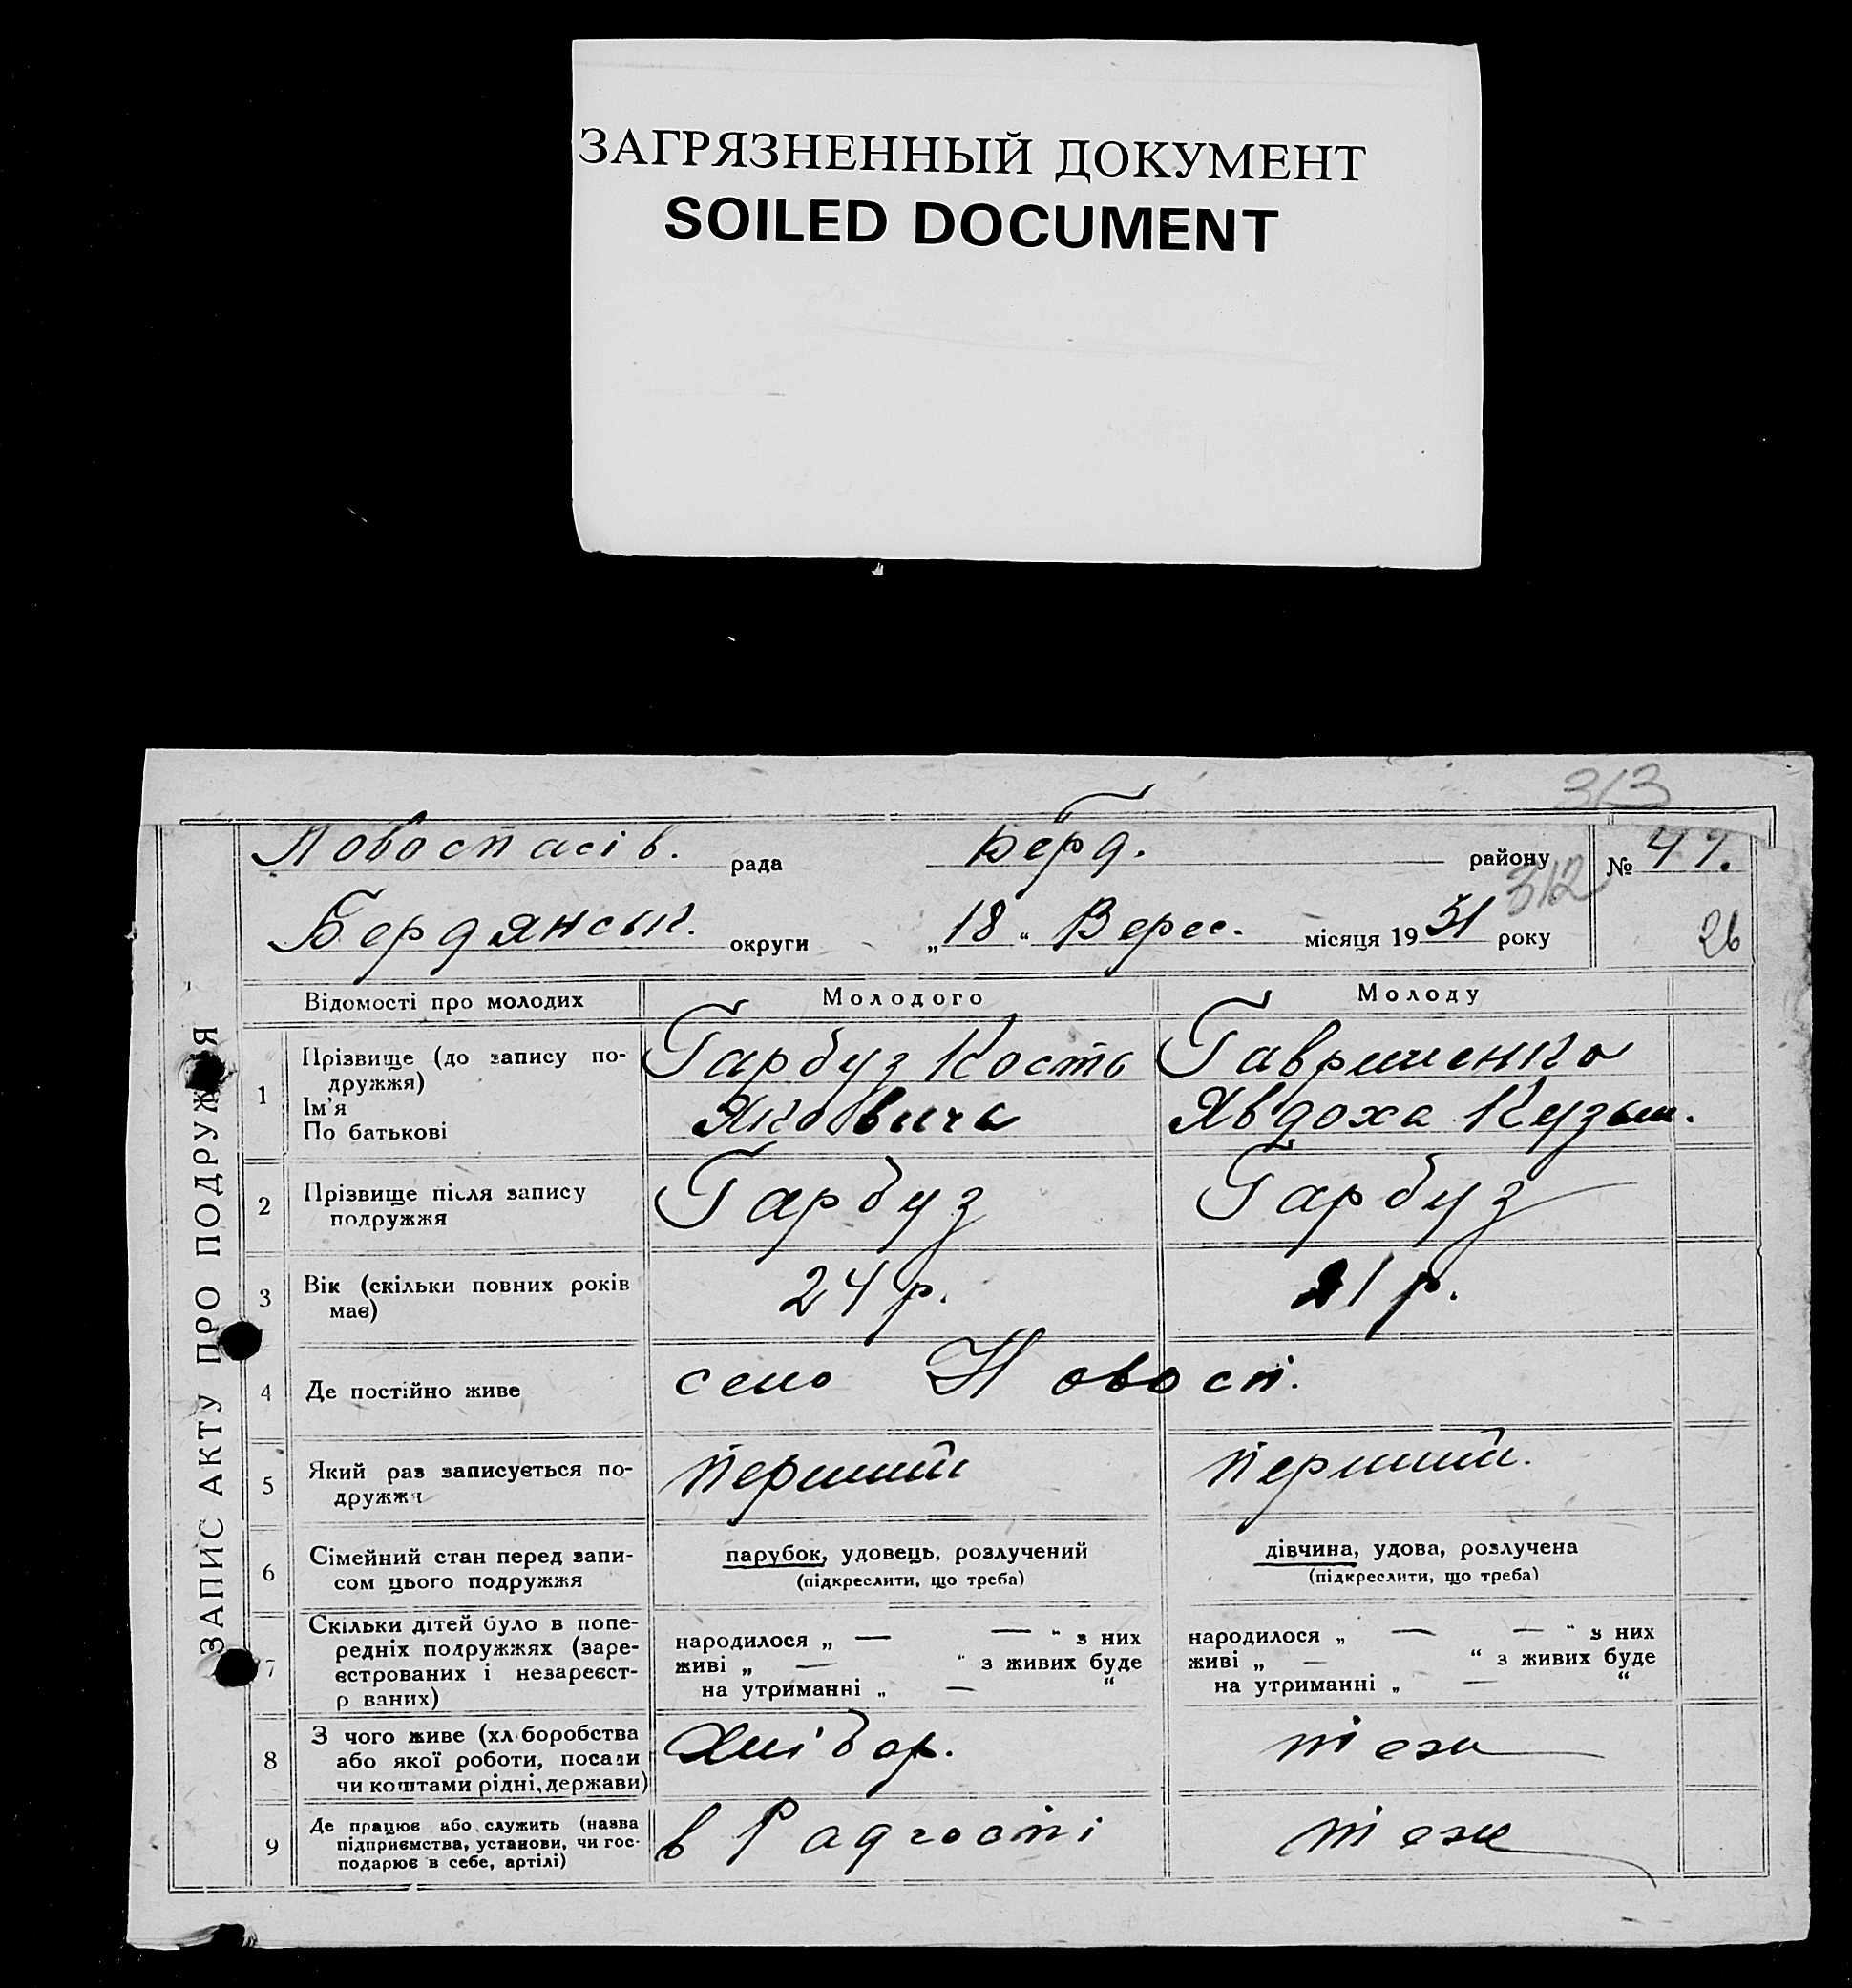 ЗАГРЯЗНЕННЫЙ ДОКУМЕНТ
SOILED DOCUMENT
313
Новоспасів. рада Берд. району № 47.
312
Бердянськ. округи „18“ Верес. місяця 1931 року
26
ЗАПИС АКТУ ПРО ПОДРУЖЖЯ
Відомості про молодих Молодого Молоду
1 Прізвище (до запису по-
дружжя)
Ім'я
По батькові
Гарбуз Кость
Яковичь
Гавришенко
Явдоха Кузьм.
2 Прізвище після запису
подружжя
Гарбуз Гарбуз
3 Вік (скільки повних років
має)
24 р. 21 р.
4 Де постійно живе село Новосп.
5 Який раз записується по-
дружжя
перший перший.
6 Сімейний стан перед запи-
сом цього подружжя
парубок, удовець, розлучений
(підкреслити, що треба)
дівчина, удова, розлучена
(підкреслити, що треба)
7 Скільки дітей було в попе-
редніх подружжях (заре-
єстрованих і незареєст-
р ваних)
народилося „ — — “ з них
живі „ — “ з живих буде
на утриманні „ — “
народилося „ — — “ з них
живі „ — “ з живих буде
на утриманні „ — “
8 З чого живе (хл боробства
або якої роботи, посади
чи коштами рідні, держави)
Хлібор. теж
9 Де працює або служить (назва
підприємства, установи, чи гос-
подарює в себе, артілі)
в Радгоспі теж